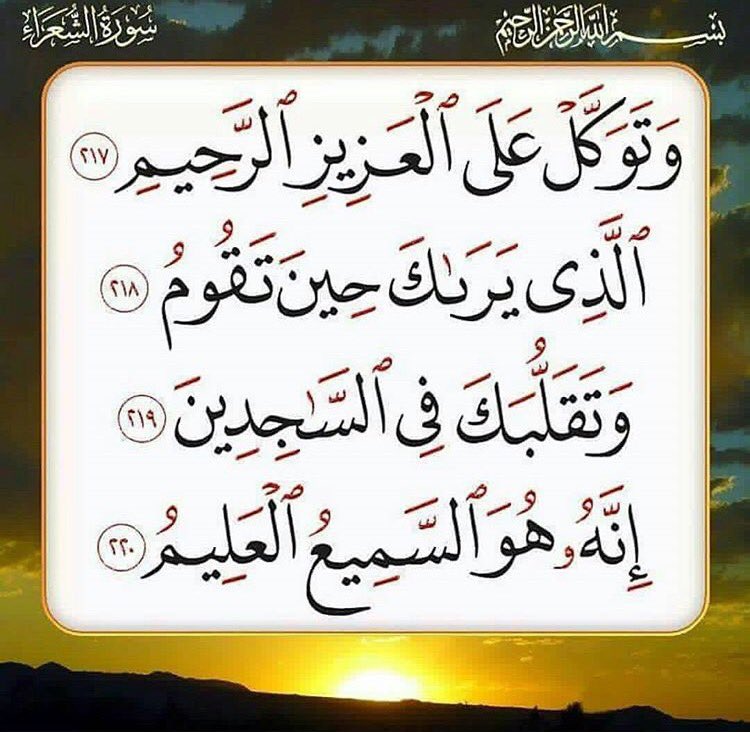 بِسْمِ ٱللَّهِ ٱلرَّحْمَٰنِ ٱلرَّحِيمِ
سُورَةُ الشُّعَرَاءِ
وَتَوَكَّلْ عَلَى ٱلْعَزِيزِ ٱلرَّحِيمِ ٢١٧
ٱلَّذِى يَرَىٰكَ حِينَ تَقُومُ ٢١٨
وَتَقَلُّبَكَ فِى ٱلسَّٰجِدِينَ ٢١٩
إِنَّهُۥ هُوَ ٱلسَّمِيعُ ٱلْعَلِيمُ ٢٢٠